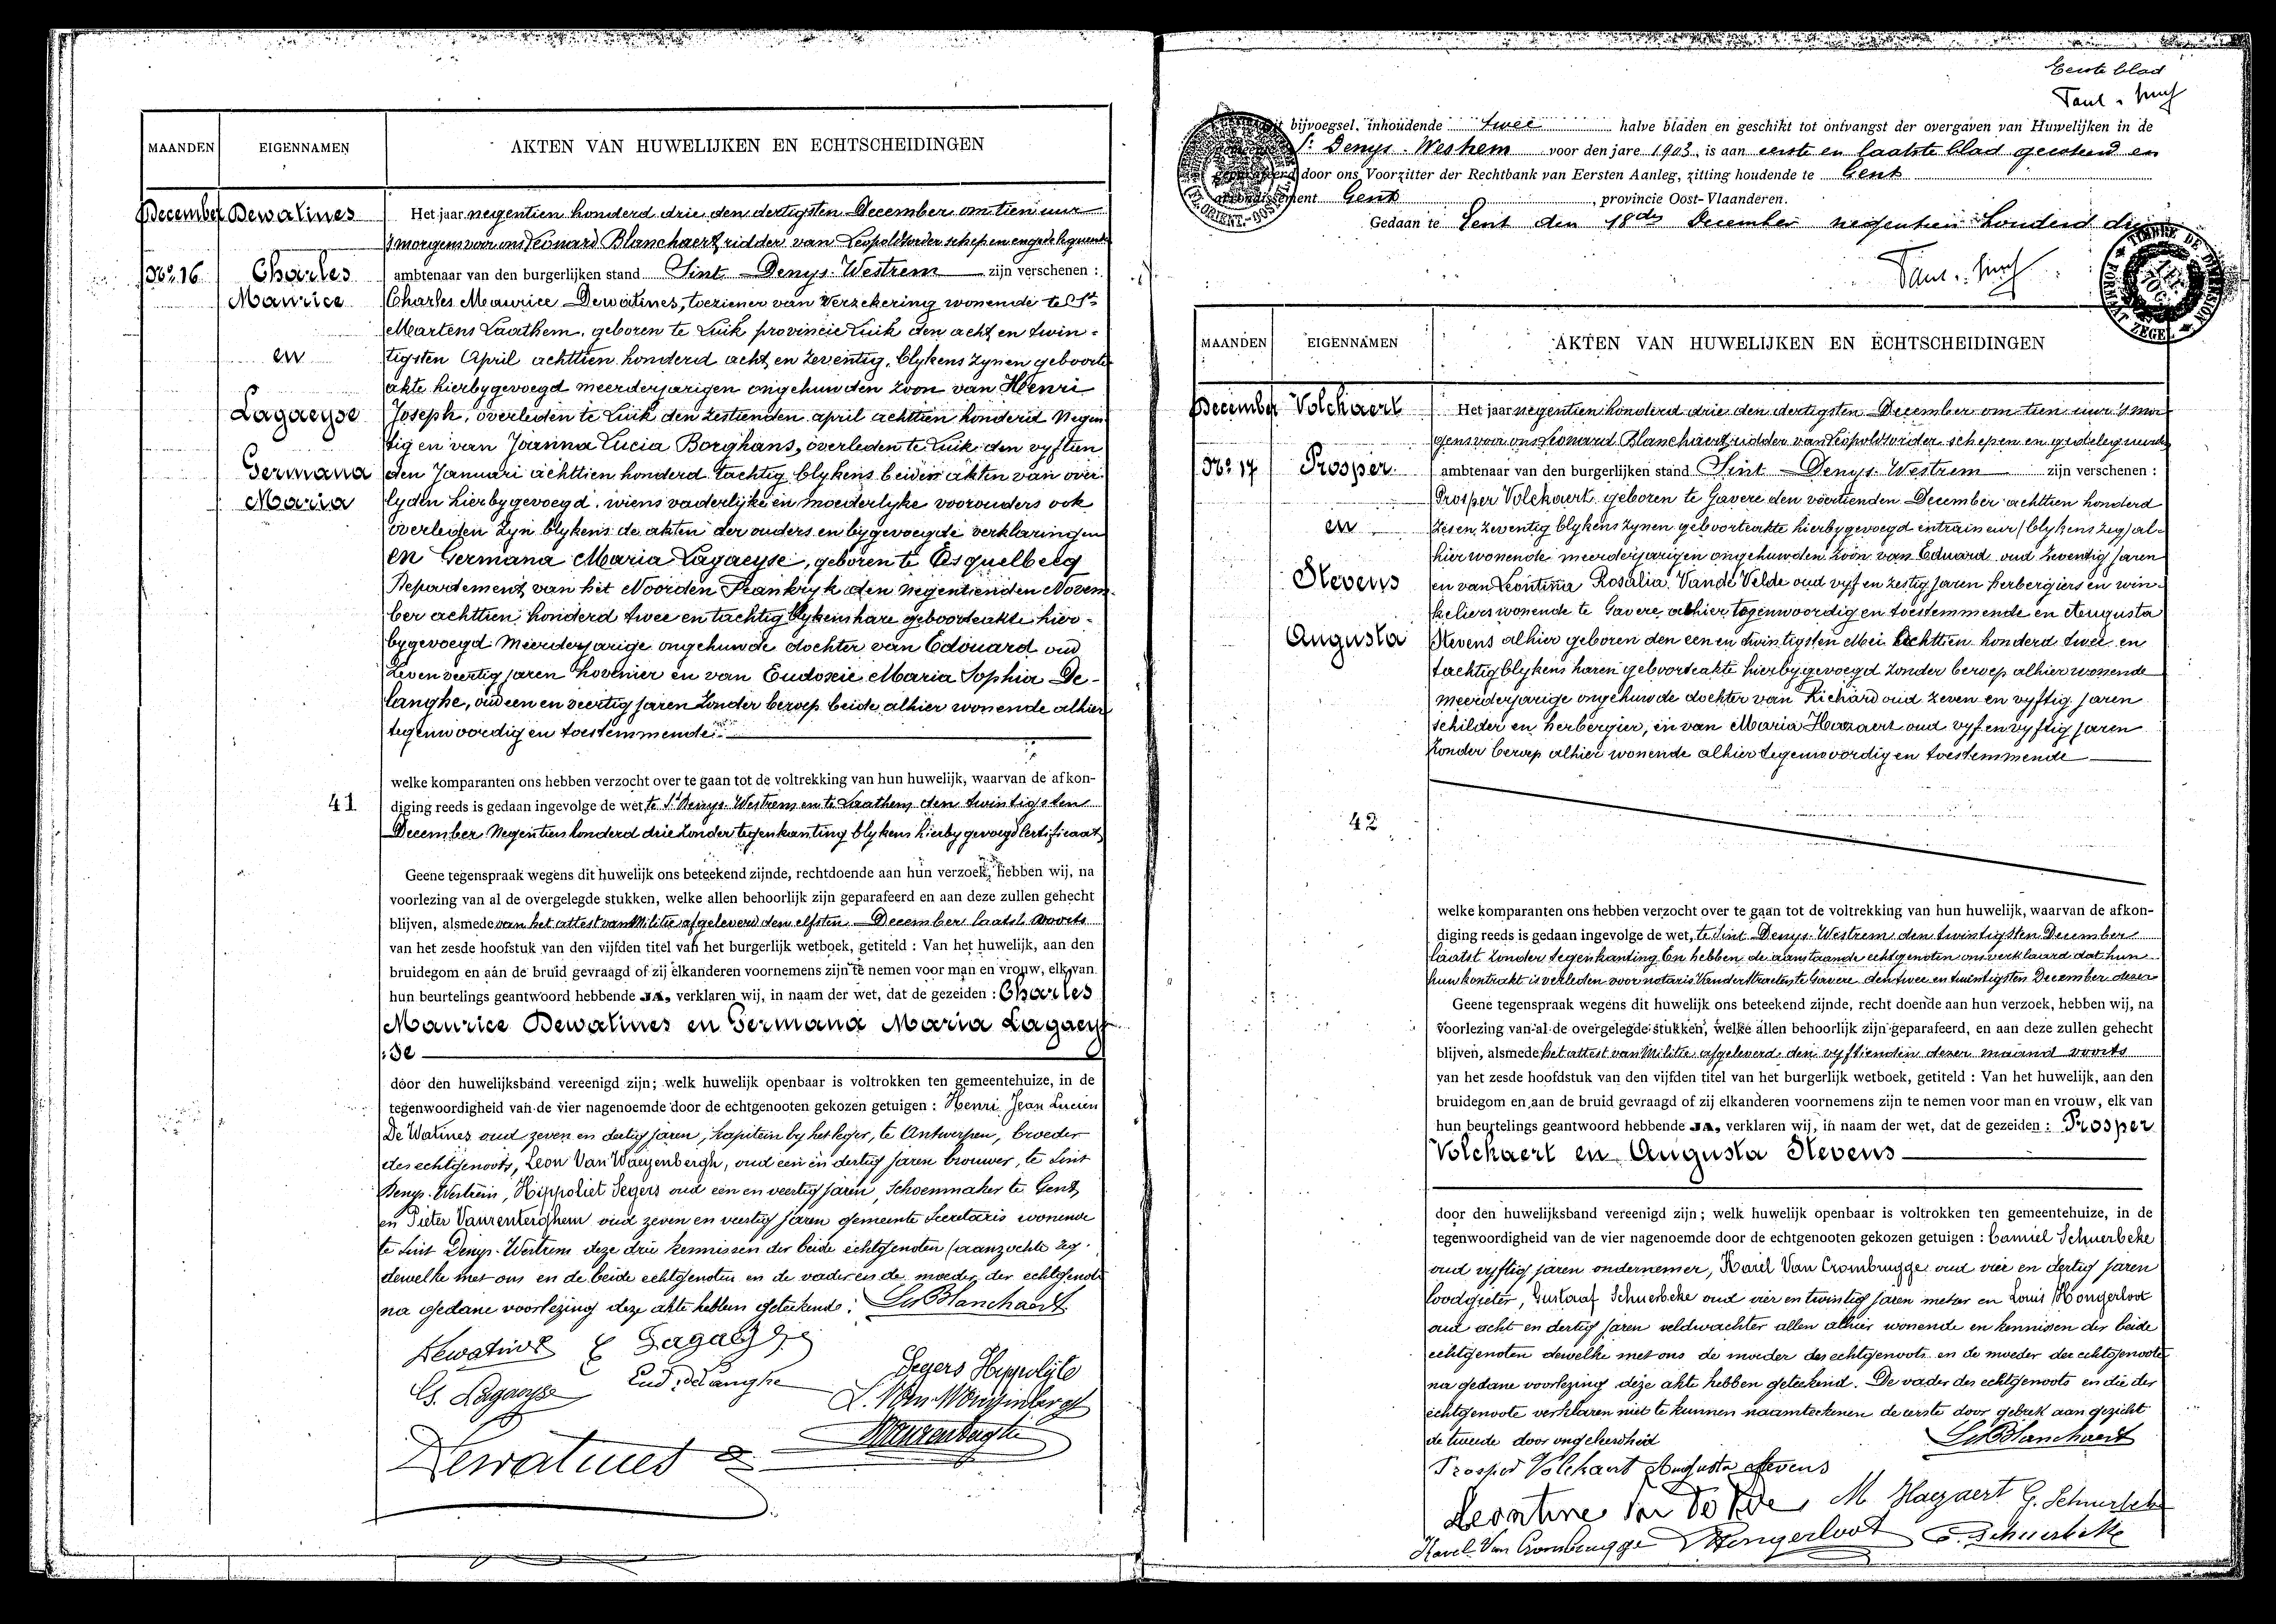 MAANDEN
EIGENNAMEN
AKTEN VAN HUWELIJKEN EN ECHTSCHEIDINGEN
December
Dewatines
No 16
Charles
Maurice
en
Lagaeyse
Germana
Maria
41
Het jaar negentien honderd drie den dertigsten December om tien uur
's morgens voor ons Leonard Blanchaert ridder van Leopoldsorder schepen en gedelegueerde
ambtenaar van den burgerlijken stand Sint Denys-Westrem zijn verschenen :
Charles Maurice Dewatines, toeziener van Verzekering wonende te St
Martens Laathem, geboren te Luik provincie Luik den acht en twin-
tigsten April achttien honderd acht en zeventig, blykens zynen geboorte
akte hierbygevoegd meerderjarigen ongehuwden zoon van Henri
Joseph, overleden te Luik den zestienden april achttien honderd Negen
tig en van Joanna Lucia Borghans, overleden te Luik den vyftien
den Januari achttien honderd tachtig blykens beiden akten van over
lyden hierbygevoegd, wiens vaderlijke en moederlyke voorouders ook
overleden zyn blykens de akten der ouders en bygevoegde verklaringen
en Germana Maria Lagaeyse, geboren te Esquelbecq
Departement van het Noorden Frankryk den negentienden Novem-
ber achttien honderd twee en tachtig blykens hare geboorteakte hier-
bygevoegd Meerderjarige ongehuwde dochter van Edouard oud
zeven veertig jaren hovenier en van Eudoxie Maria Sophia De-
langhe, oud een en veertig jaren zonder beroep beide alhier wonende alhier
tegenwoordig en toestemmende
welke komparanten ons hebben verzocht over te gaan tot de voltrekking van hun huwelijk, waarvan de afkon-
diging reeds is gedaan ingevolge de wet te St Denys-Westrem en te Laathem den twintigsten
December Negentien honderd drie zonder tegenkanting blykens hierby gevoegd Certificaat
Geene tegenspraak wegens dit huwelijk ons beteekend zijnde, rechtdoende aan hun verzoek, hebben wij, na
voorlezing van al de overgelegde stukken, welke allen behoorlijk zijn geparafeerd en aan deze zullen gehecht
blijven, alsmede van het attest van Militie afgeleverd den elfsten December laatst voorts
van het zesde hoofstuk van den vijfden titel van het burgerlijk wetboek, getiteld : Van het huwelijk, aan den
bruidegom en aan de bruid gevraagd of zij elkanderen voornemens zijn te nemen voor man en vrouw, elk van
hun beurtelings geantwoord hebbende JA, verklaren wij, in naam der wet, dat de gezeiden : Charles
Maurice Dewatines en Germana Maria Lagaey
se
door den huwelijksband vereenigd zijn; welk huwelijk openbaar is voltrokken ten gemeentehuize, in de
tegenwoordigheid van de vier nagenoemde door de echtgenooten gekozen getuigen : Henri Jean Lucien
De Watines oud zeven en dertig jaren, kapitein by het leger, te Antwerpen, broeder
des echtgenoots, Leon Van Waeyenbergh, oud een en dertig jaren brouwer, te Sint
Denys-Westrem, Hippoliet Segers oud een en veertig jaren, Schoenmaker te Gent
en Pieter Vanrenterghem oud zeven en veertig jaren gemeente Secretaris wonende
te Sint Denys-Westrem deze drie kennissen der beide echtgenoten (aanzochte zeg-
dewelke met ons en de beide echtgenoten en de vader en de moeder der echtgenote
na gedane voorlezing deze akte hebben geteekend. Leo Blanchaert
Dewatines G Lagaeyse
Segers Hippolyte
Ed. Lagaeyse Eud. delanghe
L. Van Waeyenbergh
Dewatines
Eerste blad
bijvoegsel, inhoudende twee halve bladen en geschikt tot ontvangst der overgaven van Huwelijken in de
St Denys-Westrem voor den jare 1903, is aan eerste en laatste blad gecoteerd en
geparafeerd door ons Voorzitter der Rechtbank van Eersten Aanleg, zitting houdende te Gent
arrondissement Gent, provincie Oost-Vlaanderen.
Gedaan te Gent den 18den December negentien honderd drie
TIMBRE DE DIMENSION
FORMAAT ZEGEL
MAANDEN
EIGENNAMEN
AKTEN VAN HUWELIJKEN EN ECHTSCHEIDINGEN
December
Volckaert
No 17
Prosper
en
Stevens
Augusta
42
Het jaar negentien honderd drie den dertigsten December om tien uur 's mor
gens voor ons Leonard Blanchaert ridder van Leopoldsorder schepen en gedelegueerde
ambtenaar van den burgerlijken stand Sint Denys-Westrem zijn verschenen :
Prosper Volckaert geboren te Gavere den veertienden December achttien honderd
zes en zeventig blykens zynen geboorteakte hierbygevoegd entraineur (blykens zeg) al-
hier wonende meerderjarigen ongehuwden zoon van Eduard oud zeventig jaren
en van Leontina Rosalia Vande Velde oud vyf en zestig jaren herbergiers en win-
keliers wonende te Gavere alhier tegenwoordig en toestemmende en Augusta
Stevens alhier geboren den een en twintigsten Mei achttien honderd twee en
tachtig blykens haren geboorteakte hierbygevoegd zonder beroep alhier wonende
meerderjarige ongehuwde dochter van Richard oud zeven en vyftig jaren
schilder en herbergier, en van Maria Haezaert oud vyf en vyftig jaren
zonder beroep alhier wonende alhier tegenwoordig en toestemmende
welke komparanten ons hebben verzocht over te gaan tot de voltrekking van hun huwelijk, waarvan de afkon-
diging reeds is gedaan ingevolge de wet, te Sint Denys-Westrem den twintigsten December
laatst zonder tegenkanting En hebben de aanstaande echtgenoten ons verklaard dat hun
huwkontrakt is verleden voor notaris Vanderstraeten te Gavere den twee en twintigsten December dezer
Geene tegenspraak wegens dit huwelijk ons beteekend zijnde, recht doende aan hun verzoek, hebben wij, na
voorlezing van al de overgelegde stukken, welke allen behoorlijk zijn geparafeerd, en aan deze zullen gehecht
blijven, alsmede het attest van Militie afgeleverd den vyftienden dezer maand voorts
van het zesde hoofdstuk van den vijfden titel van het burgerlijk wetboek, getiteld : Van het huwelijk, aan den
bruidegom en aan de bruid gevraagd of zij elkanderen voornemens zijn te nemen voor man en vrouw, elk van
hun beurtelings geantwoord hebbende JA, verklaren wij, in naam der wet, dat de gezeiden : Prosper
Volckaert en Augusta Stevens
door den huwelijksband vereenigd zijn; welk huwelijk openbaar is voltrokken ten gemeentehuize, in de
tegenwoordigheid van de vier nagenoemde door de echtgenooten gekozen getuigen : Camiel Schuerbeke
oud vyftig jaren ondernemer, Karel Van Crombrugge oud vier en dertig jaren
loodgieter, Gustaaf Schuerbeke oud vier en twintig jaren metser en Louis Hongerloot
oud acht en dertig jaren veldwachter allen alhier wonende en kennissen der beide
echtgenoten dewelke met ons de moeder des echtgenoots en de moeder der echtgenoote
na gedane voorlezing deze akte hebben geteekend. De vader des echtgenoots en die der
echtgenoote verklaren niet te kunnen naamteekenen de eerste door gebrek aan gezicht
de tweede door ongeleerdheid Leo Blanchaert
Prosper Volckaert Augusta Stevens
Leontine Van De Velde M Haezaert G. Schuerbeke
Karel Van Crombrugge L Hongerloot C. Schuerbeke